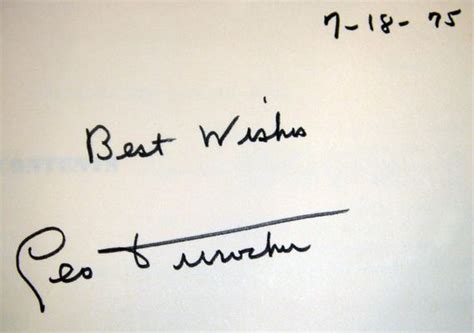 7-18-75
Best Wishes
Leo Durocher
CONTENTS